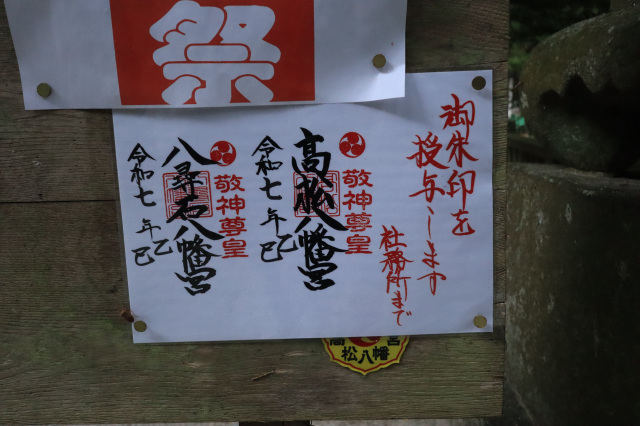 祭
御朱印を
授与します
社務所まで
敬神尊皇
高松八幡宮
令和七年乙巳
敬神尊皇
八尋石八幡宮
令和七年乙巳
松八幡